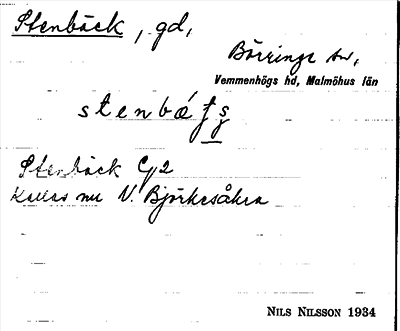 Stenbäck, gd,
Börringe sn,
Vemmenhögs hd, Malmöhus län
Stenbäck
Kallas nu V. Björkesåkra
NILS NILSSON 1934